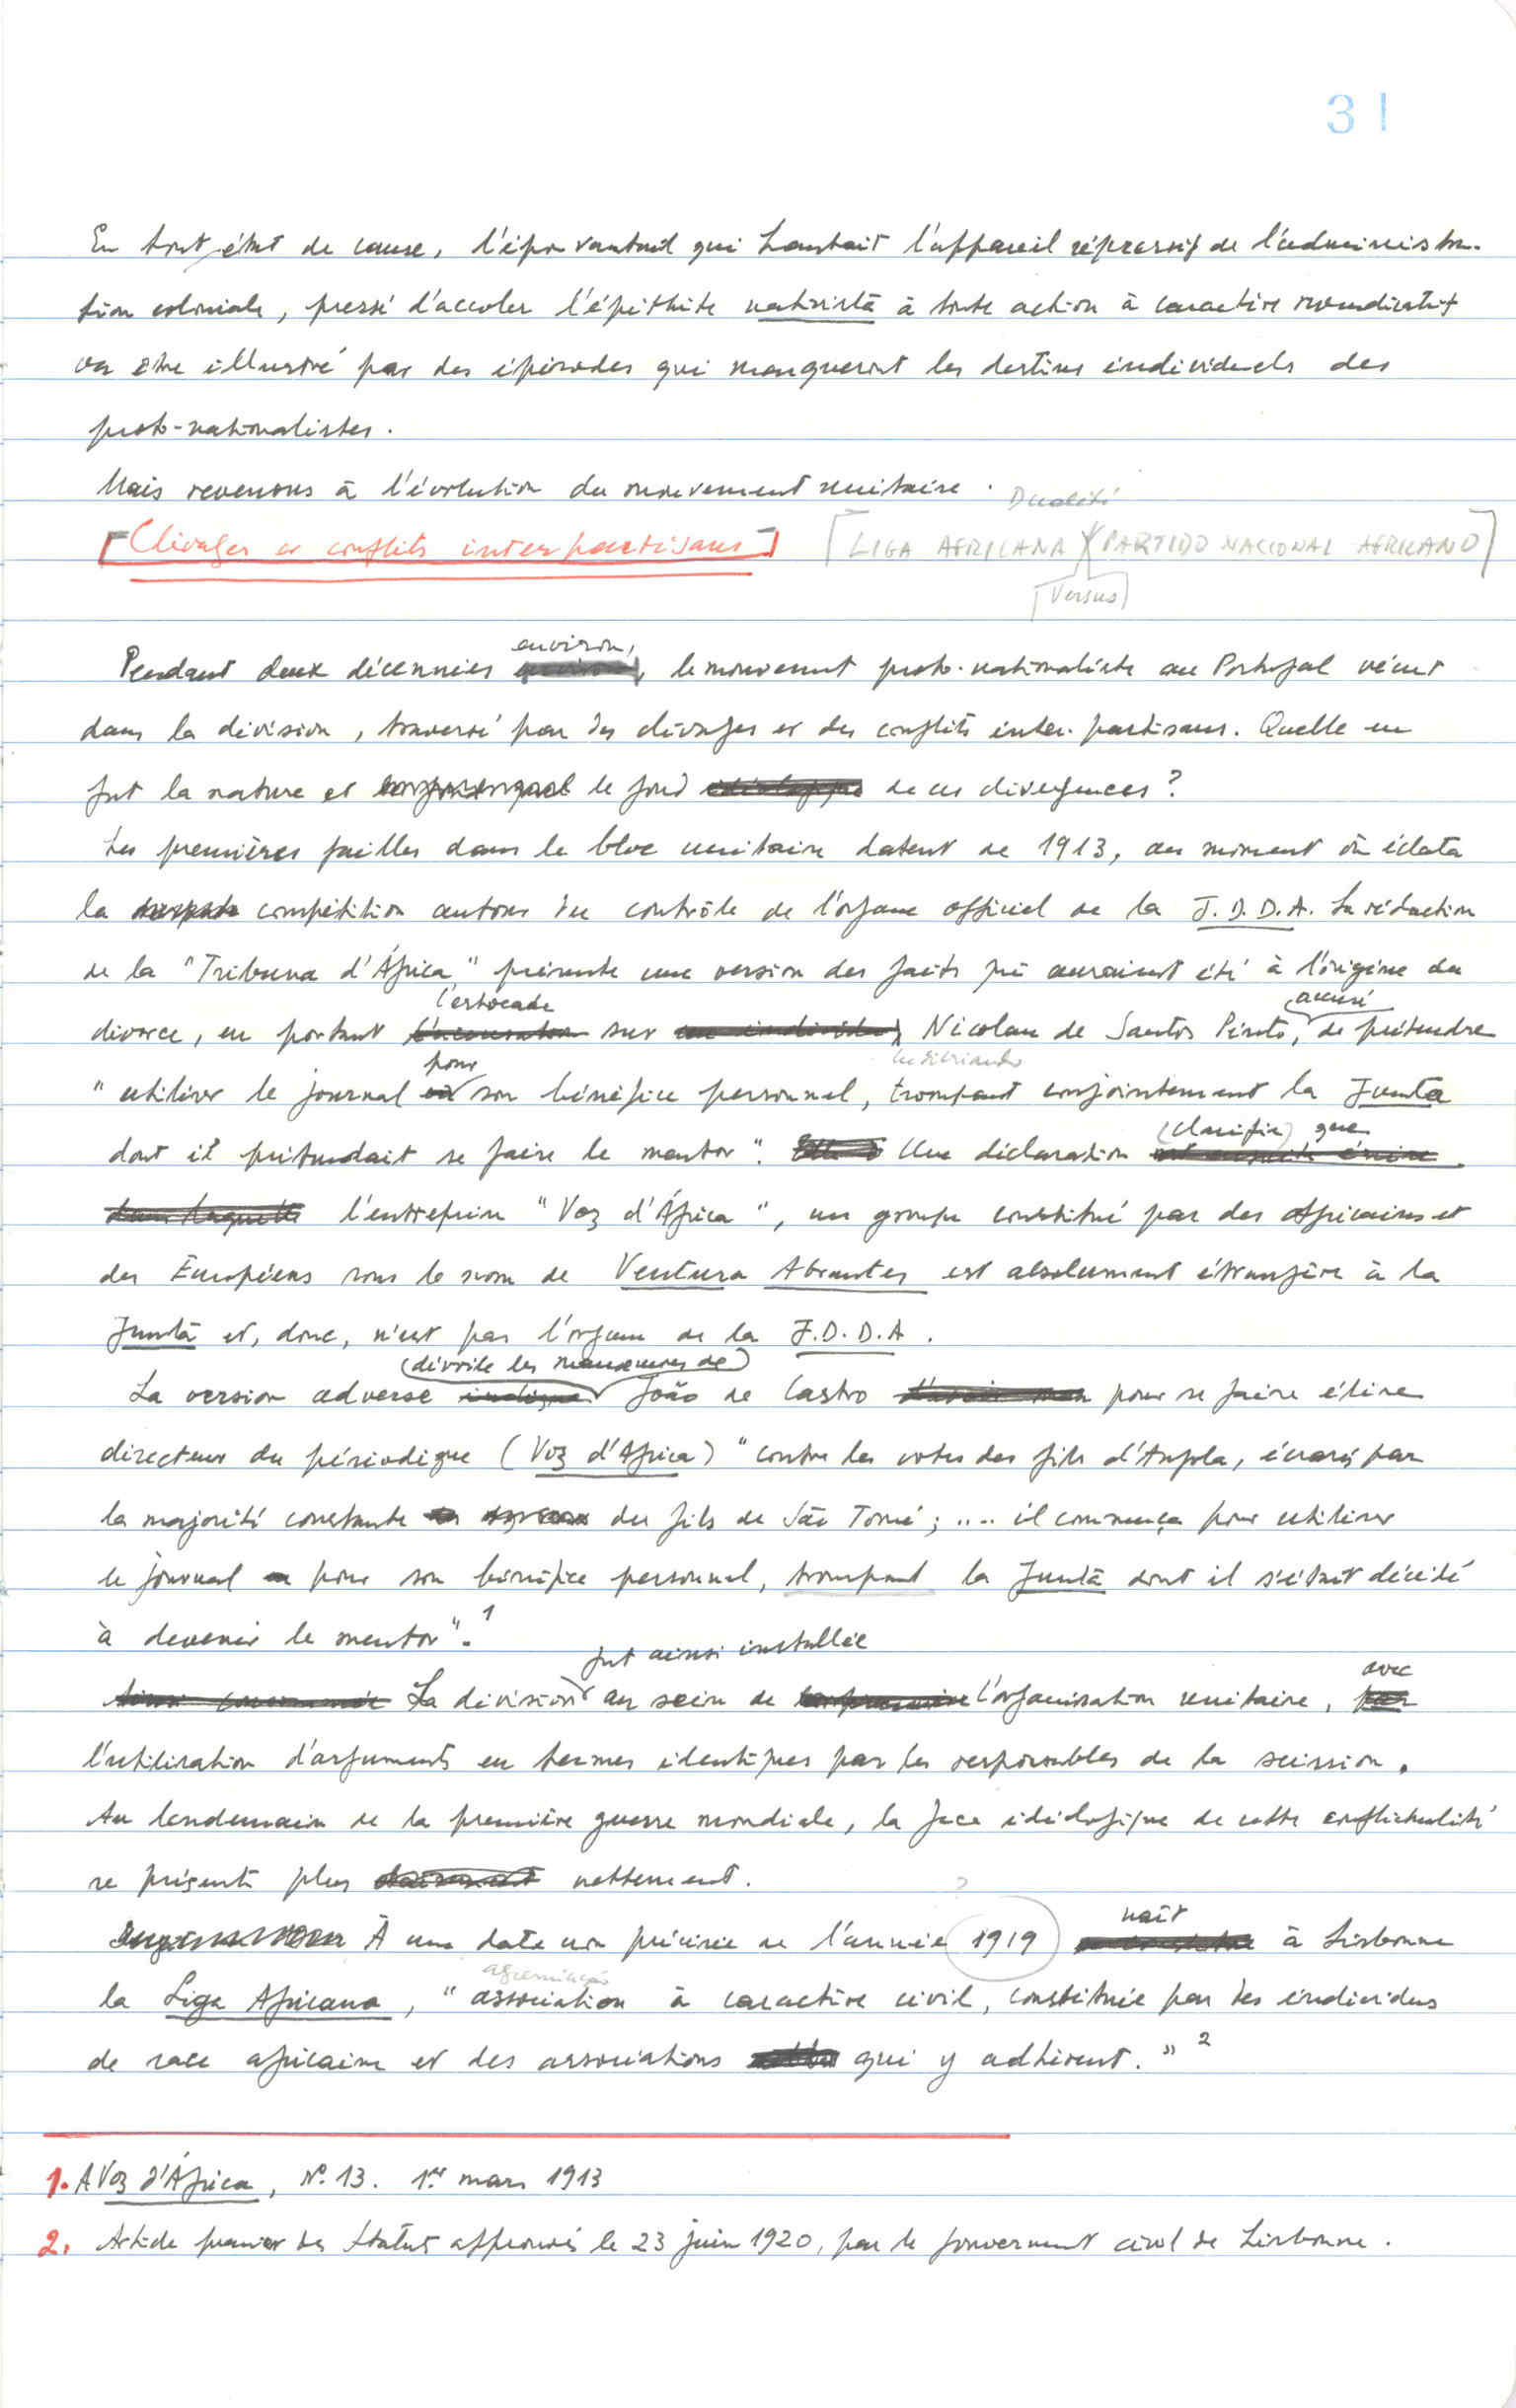 31
En tout état de cause, l'épouvantail qui hantait l'appareil répressif de l'administra-
tion coloniale, pressé d'accoler l'épithète nativista à toute action à caractère revendicatif
va être illustré par des épisodes qui marqueront les destins individuels des
proto-nationalistes.
Mais revenons à l'évolution du mouvement unitaire.
Dualité
[Clivages et conflits interpartisans] [LIGA AFRICANA PARTIDO NACIONAL AFRICANO]
[Versus]
environ,
Pendant deux décennies le mouvement proto-nationaliste au Portugal vécut
dans la division, traversé par des clivages et des conflits inter-partisans. Quelle en
fut la nature et le fond de ces divergences?
Les premières failles dans le bloc unitaire datent de 1913, au moment où éclata
la compétition autour du contrôle de l'organe officiel de la J.D.D.A. La rédaction
de la "Tribuna d'África" présente une version des faits qui auraient été à l'origine du
l'estocade accusé
divorce, en portant sur Nicolau de Santos Pinto, de prétendre
pour
"utiliser le journal son bénéfice personnel, trompant conjointement la Junta
(clarifie) que
dont il prétendait se faire le mentor". Une déclaration
l'entreprise "Voz d'África", un groupe constitué par des Africains et
des Européens sous le nom de Ventura Abrantes est absolument étrangère à la
Junta et, donc, n'est pas l'organe de la J.D.D.A.
(dévoile les manœuvres de)
La version adverse João de Castro pour se faire élire
directeur du périodique (Voz d'Africa) "contre les votes des fils d'Angola, écrasés par
la majorité constante des fils de São Tomé; .... il commença pour utiliser
le journal pour son bénéfice personnel, trompant la Junta dont il s'était décidé
à devenir le mentor".1
fut ainsi installée avec
La division au sein de l'organisation unitaire,
l'utilisation d'arguments en termes identiques par les responsables de la scission.
Au lendemain de la première guerre mondiale, la face idéologique de cette conflictualité
se présenta plus nettement.
?
naît
À une date non précisée de l'année 1919 à Lisbonne
agremiação
la Liga Africana, "association à caractère civil, constituée par des individus
de race africaine et des associations qui y adhèrent." 2
1. A Voz d'África, Nº 13. 1er mars 1913
2. Article premier des Statuts approuvés le 23 juin 1920, par le gouvernement civil de Lisbonne.